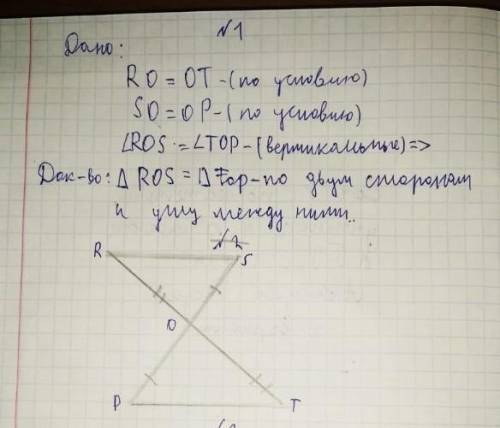 №1
Дано:
RO = OT - (по условию)
SO = OP - (по условию)
∠ROS = ∠TOP - (вертикальные) =>
Док-во: Δ ROS = Δ Top - по двум сторонам
и углу между ними..
№2
R S
O
P T